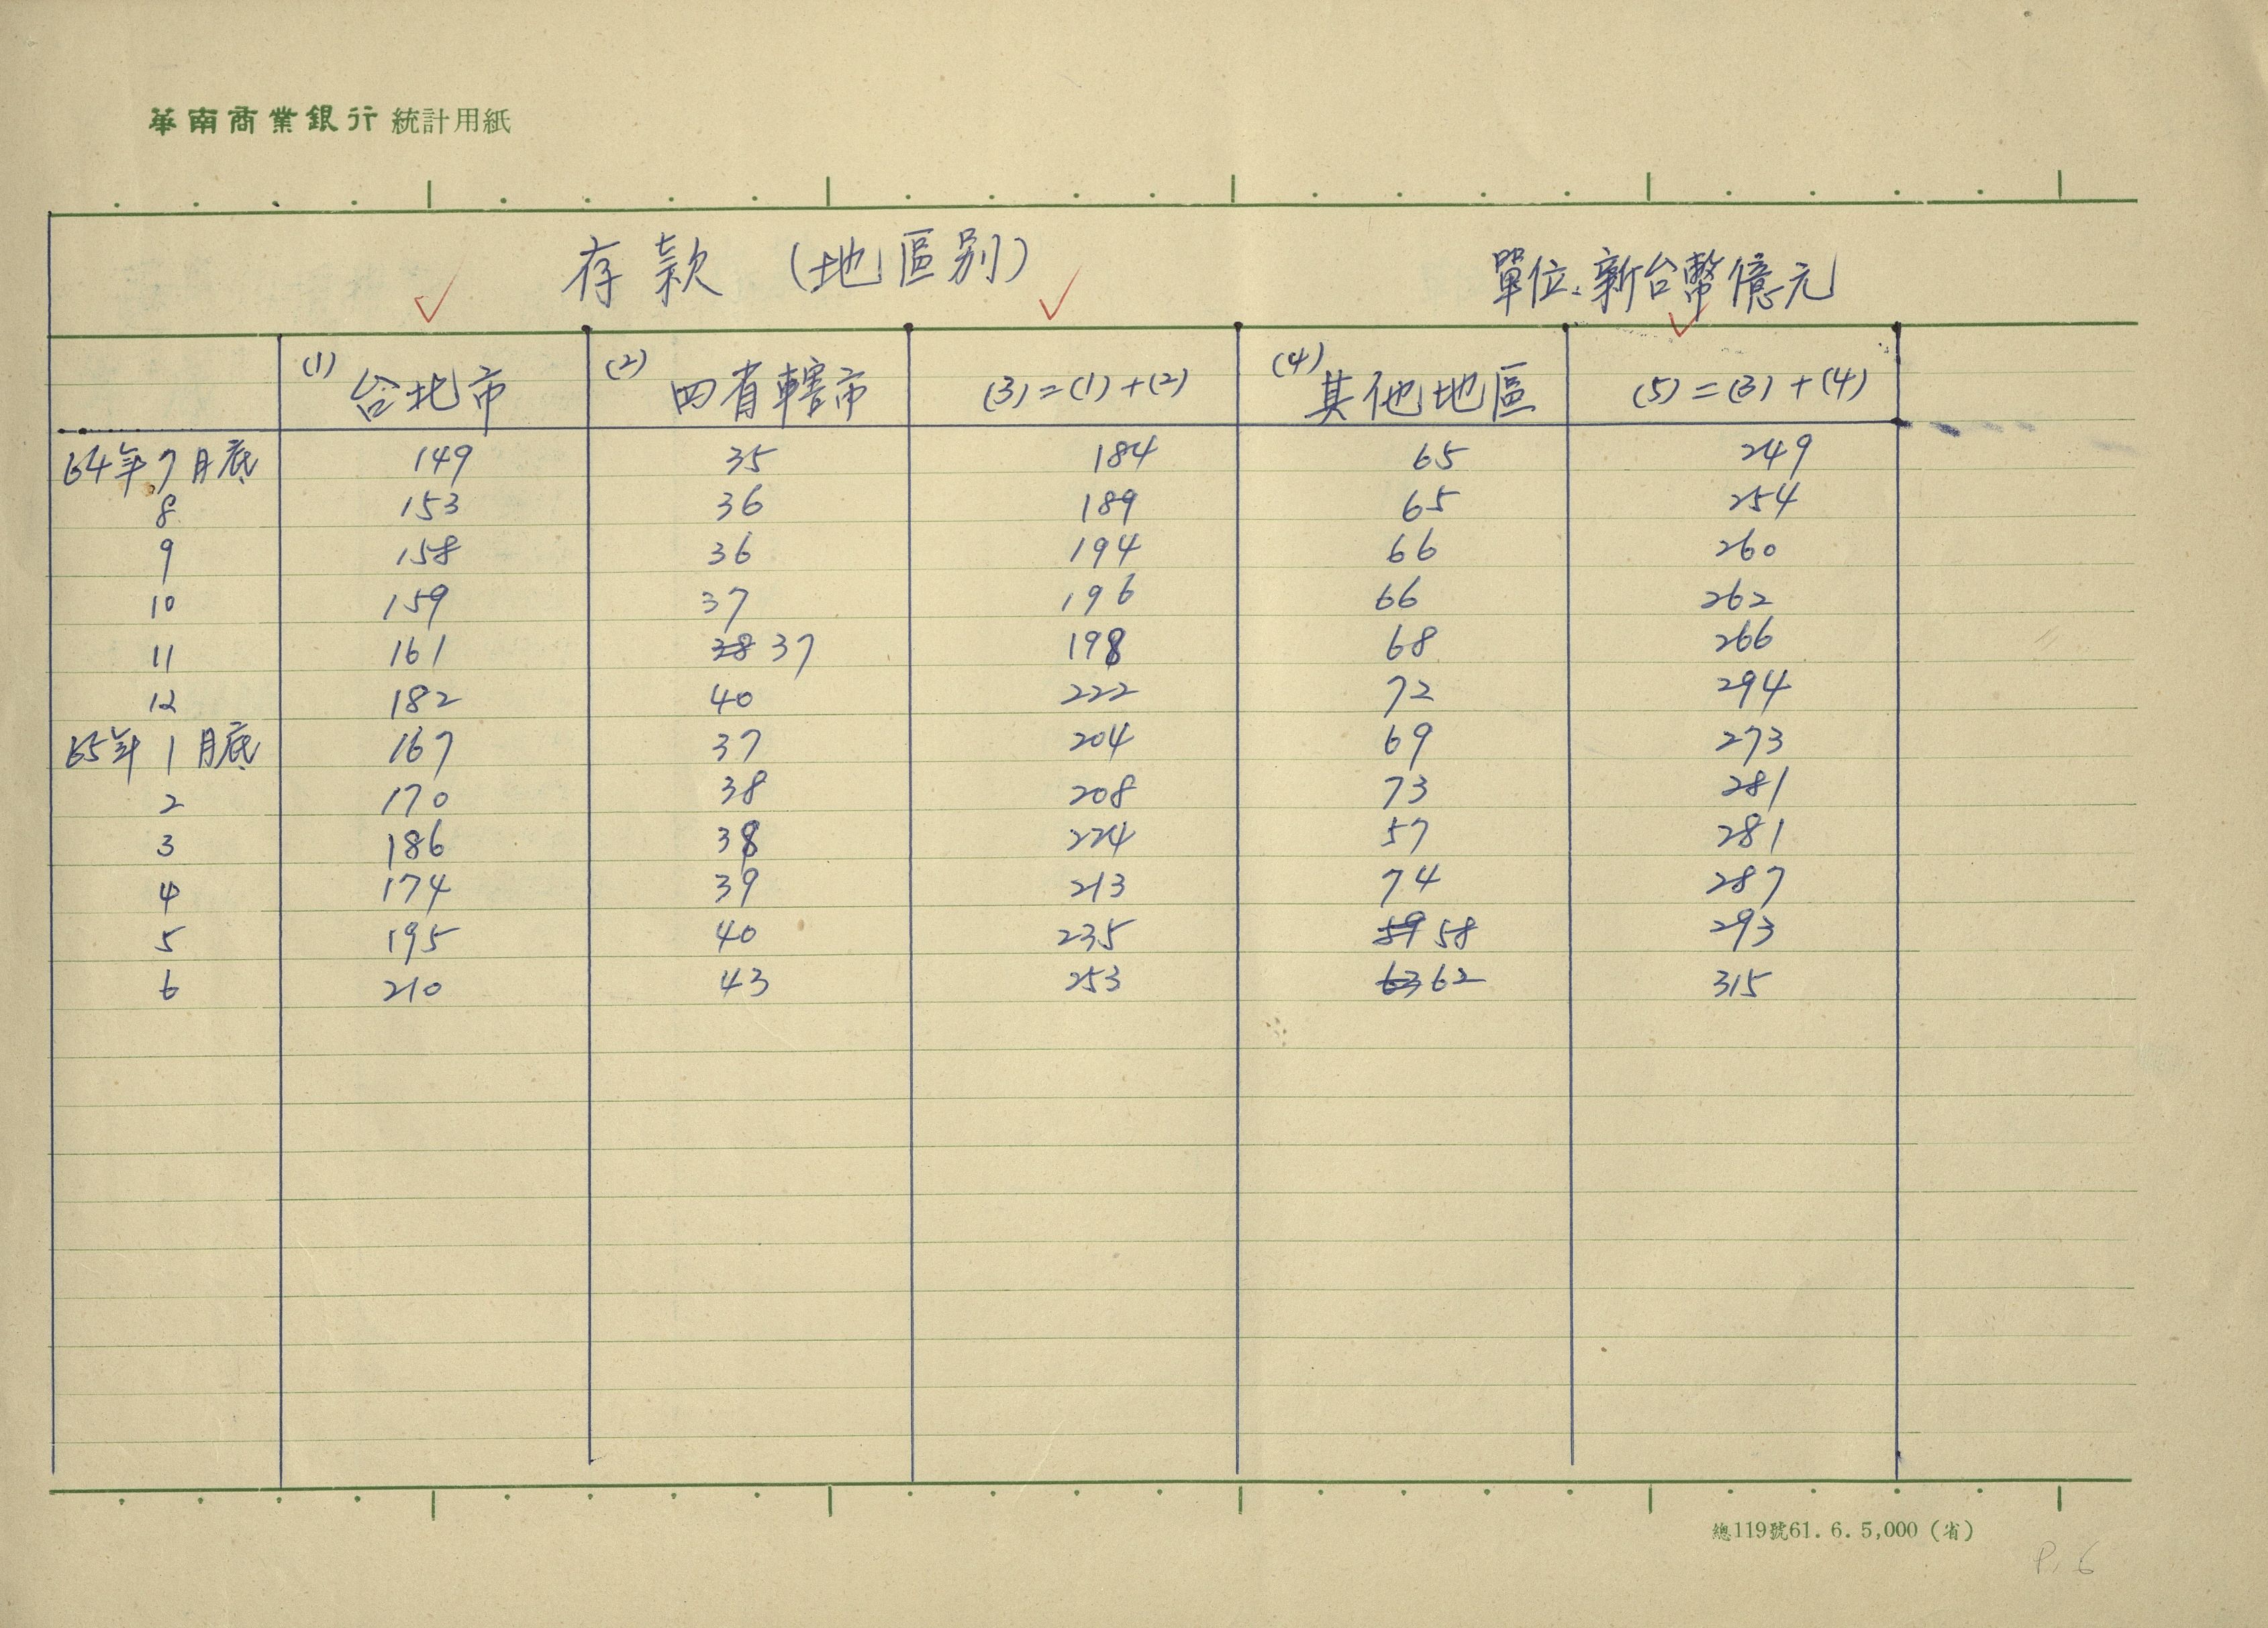 華南商業銀行 統計用紙
存款 (地區別) 單位、新台幣億元
(1) 台北市 (2) 四省轄市 (3)=(1)+(2) (4) 其他地區 (5)=(3)+(4)
64年7月底 149 35 184 65 249
8 153 36 189 65 254
9 158 36 194 66 260
10 159 37 196 66 262
11 161 38 37 198 68 266
12 182 40 222 72 294
65年1月底 167 37 204 69 273
2 170 38 208 73 281
3 186 38 224 57 281
4 174 39 213 74 287
5 195 40 235 59 58 293
6 210 43 253 63 62 315
總119號61.6.5,000(省)
P.6